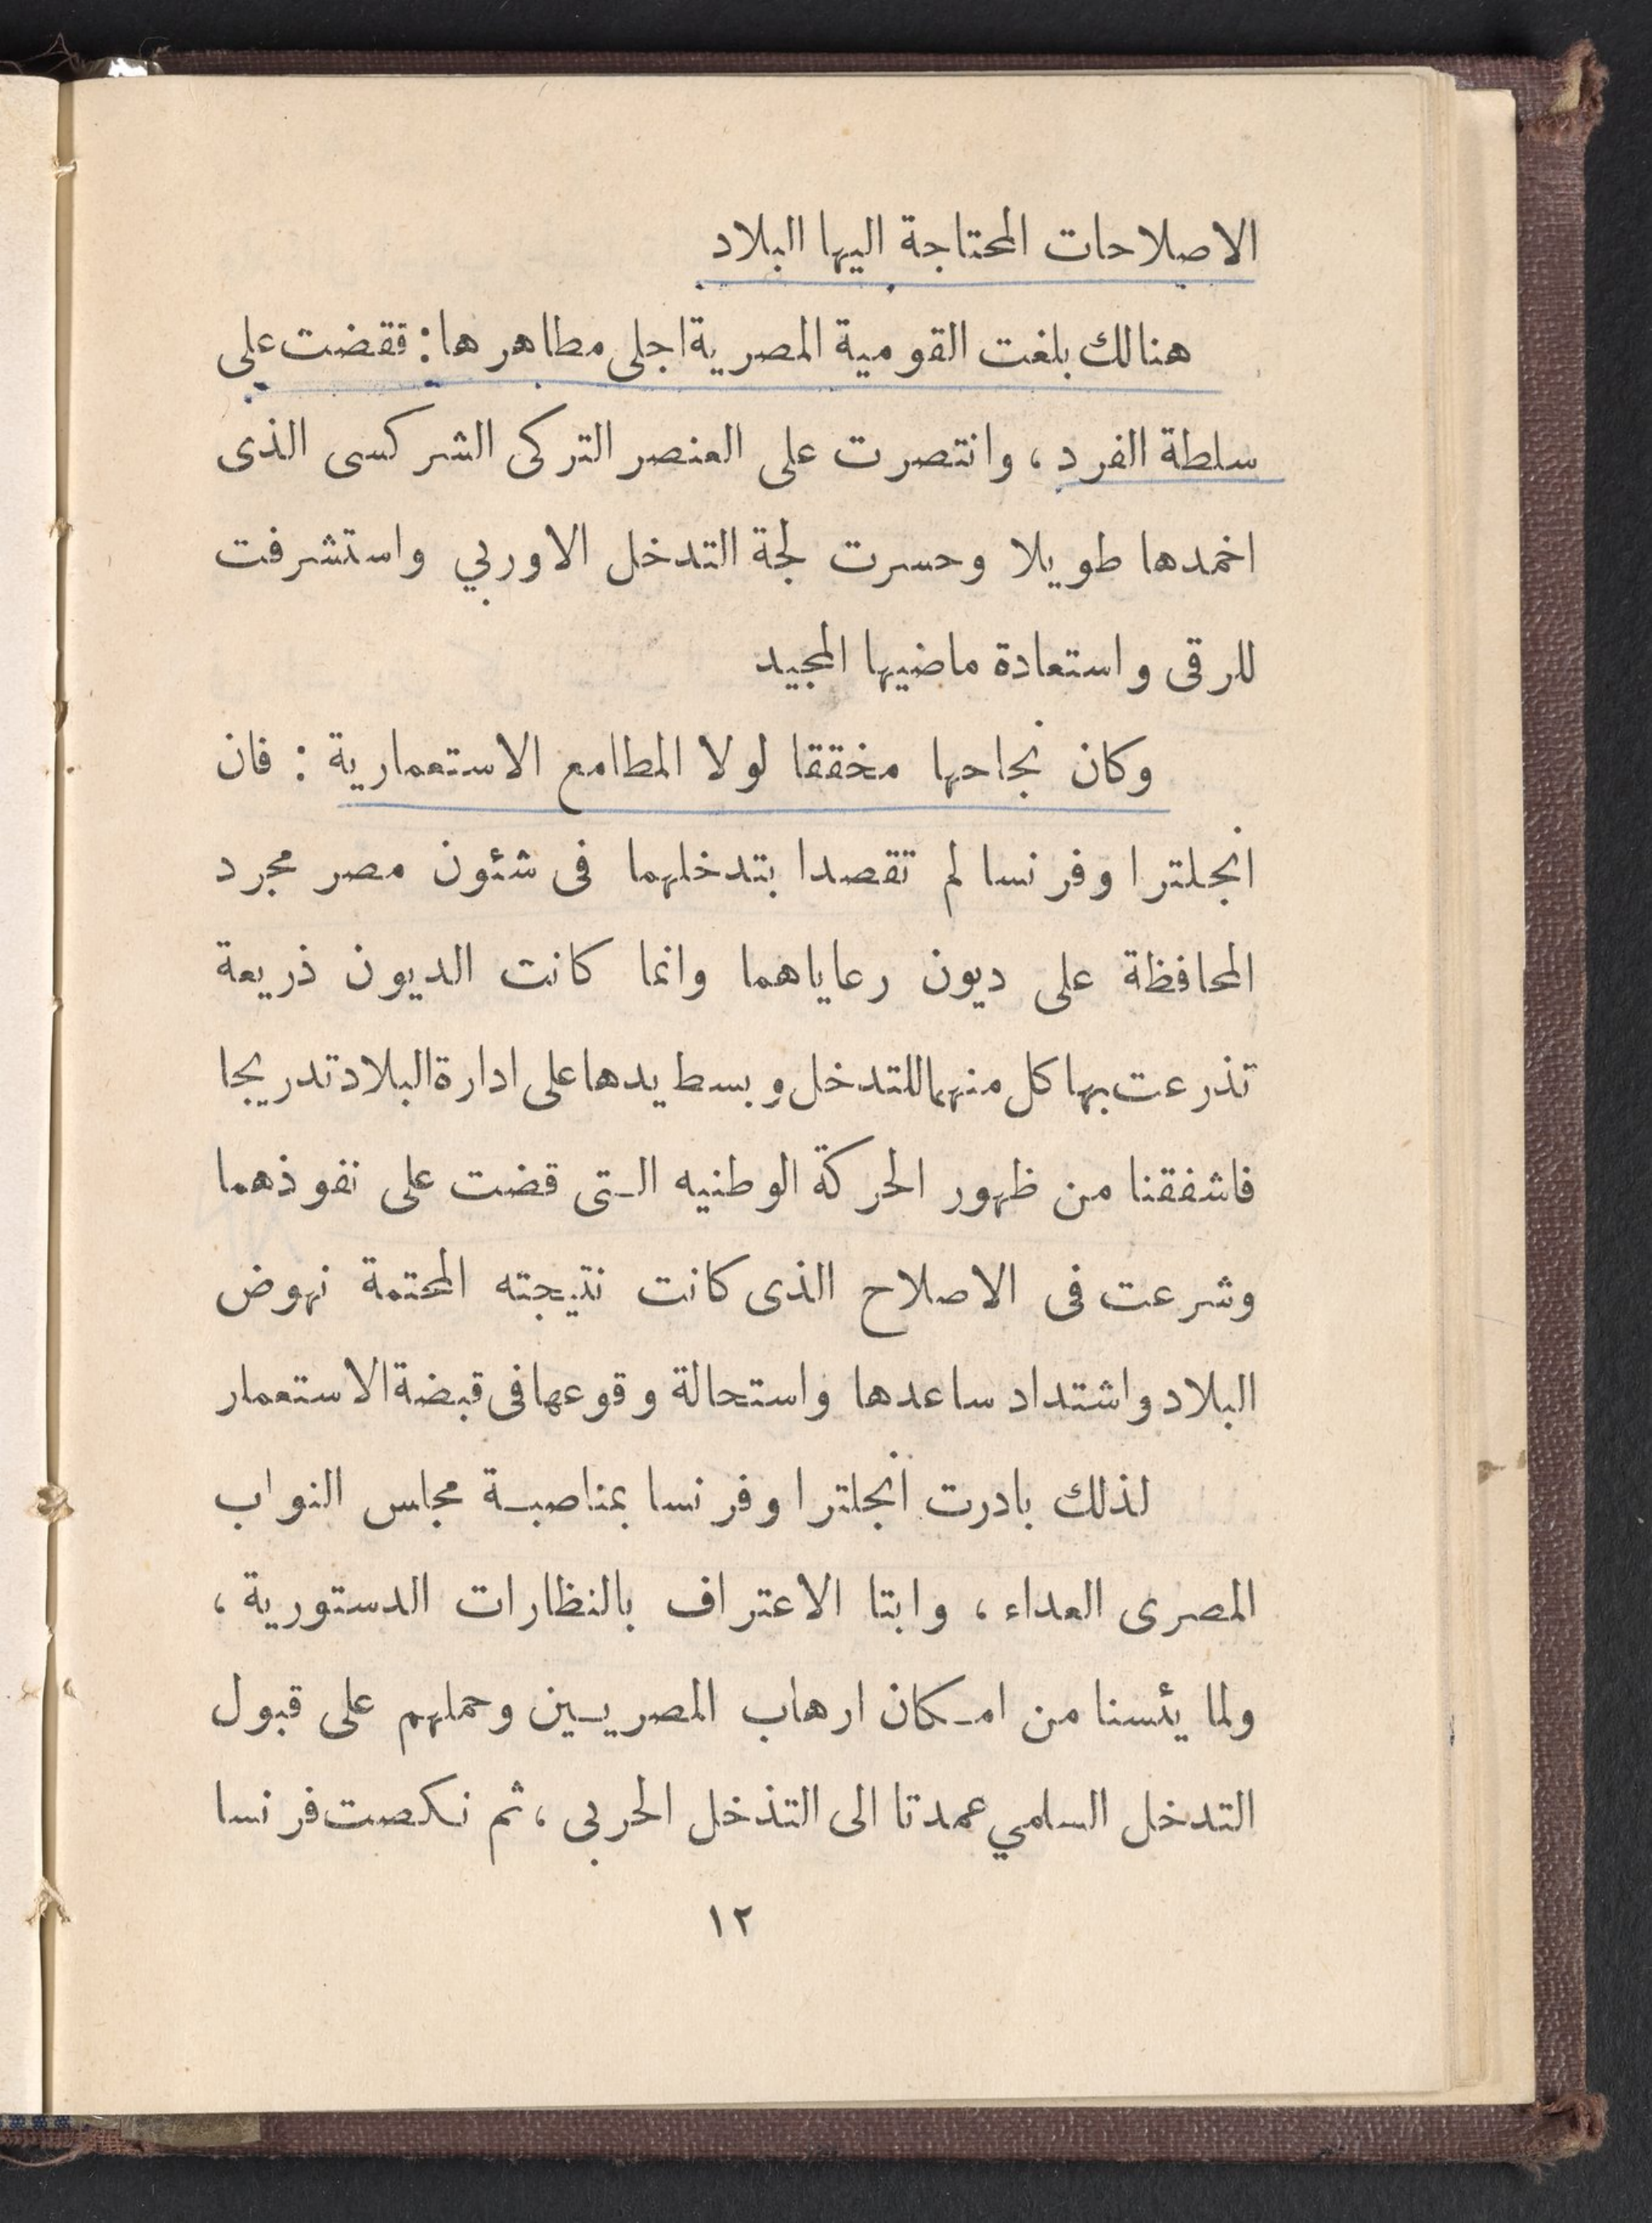 الاصلاحات المحتاجة اليها البلاد
هنالك بلغت القومية المصرية اجلى مطاهرها : فقضت على
سلطة الفرد ، وانتصرت على العنصر التركى الشركسى الذى
اخمدها طويلا وحسرت لجة التدخل الاوربي واستشرفت
للرقى واستعادة ماضيها المجيد
وكان نجاحها مخققا لولا المطامع الاستعمارية : فان
انجلترا وفرنسا لم تقصدا بتدخلهما فى شئون مصر مجرد
المحافظة على ديون رعاياهما وانما كانت الديون ذريعة
تذرعت بها كل منهما للتدخل وبسط يدها على ادارة البلاد تدريجا
فاشفقنا من ظهور الحركة الوطنيه التى قضت على نفوذهما
وشرعت فى الاصلاح الذى كانت نتيجته المحتمة نهوض
البلاد واشتداد ساعدها واستحالة وقوعها فى قبضة الاستعمار
لذلك بادرت انجلترا وفرنسا بمناصبة مجلس النواب
المصرى العداء ، وابتا الاعتراف بالنظارات الدستورية ،
ولما يئسنا من امكان ارهاب المصريين وحملهم على قبول
التدخل السلمي عمدتا الى التذخل الحربى ، ثم نكصت فرنسا
١٢